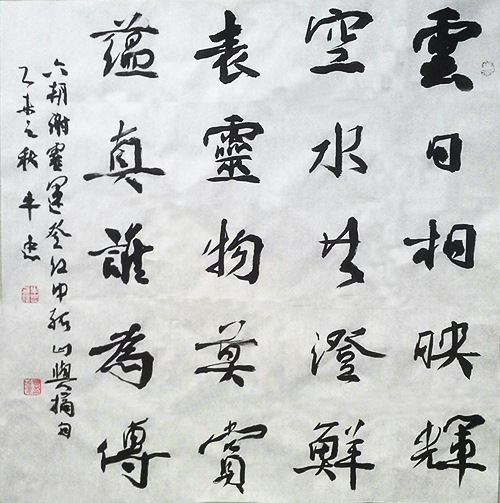 雲日相映輝
空水共澄鮮
表靈物莫賞
蘊真誰為傳
六朝謝靈運登江中孤山與摘句
乙未之秋牛